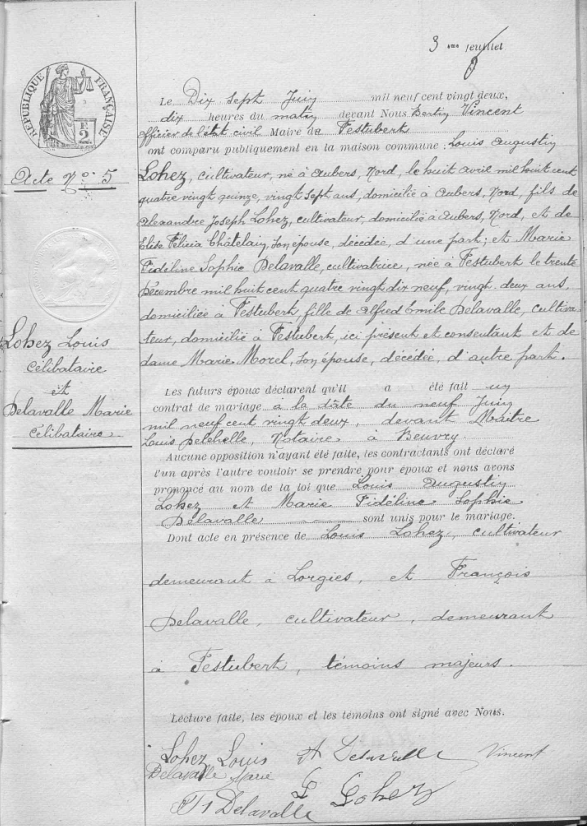 3me feuillet
RÉPUBLIQUE FRANÇAISE
Le Dix Sept Juin mil neuf cent vingt deux,
dix heures du matin devant Nous Bertin Vincent
officier de l'état civil Maire de Festubert
ont comparu publiquement en la maison commune : Louis Augustin
Acte N° 5
Lohez, cultivateur, né à Aubers, Nord, le huit avril mil huit cent
quatre vingt quinze, vingt sept ans, domicilié à Aubers, Nord, fils de
Alexandre Joseph Lohez, cultivateur, domicilié à Aubers, Nord, et de
Elise Félicia Chatelain, son épouse, décédée, d'une part ; et Marie
Fidéline Sophie Delavalle, cultivatrice, née à Festubert le trente
Décembre mil huit cent quatre vingt dix neuf, vingt deux ans,
domiciliée à Festubert, fille de Alfred Emile Delavalle, cultiva
teur, domicilié à Festubert, ici présent et consentant et de
dame Marie Morel, son épouse, décédée, d'autre part.
Lohez Louis
Célibataire
et
Delavalle Marie
Célibataire
Les futurs époux déclarent qu'il a été fait un
contrat de mariage à la date du neuf Juin
mil neuf cent vingt deux, devant Maître
Louis Delehelle, Notaire à Beuvry.
Aucune opposition n'ayant été faite, les contractants ont déclaré
l'un après l'autre vouloir se prendre pour époux et nous avons
prononcé au nom de la loi que Louis Augustin
Lohez et Marie Fidéline Sophie
Delavalle sont unis pour le mariage.
Dont acte en présence de Louis Lohez, cultivateur
demeurant à Lorgies, et François
Delavalle, cultivateur, demeurant
à Festubert, témoins majeurs.
Lecture faite, les époux et les témoins ont signé avec Nous.
Lohez Louis A Delavalle Vincent
Delavalle Marie
L Lohez
Fs Delavalle